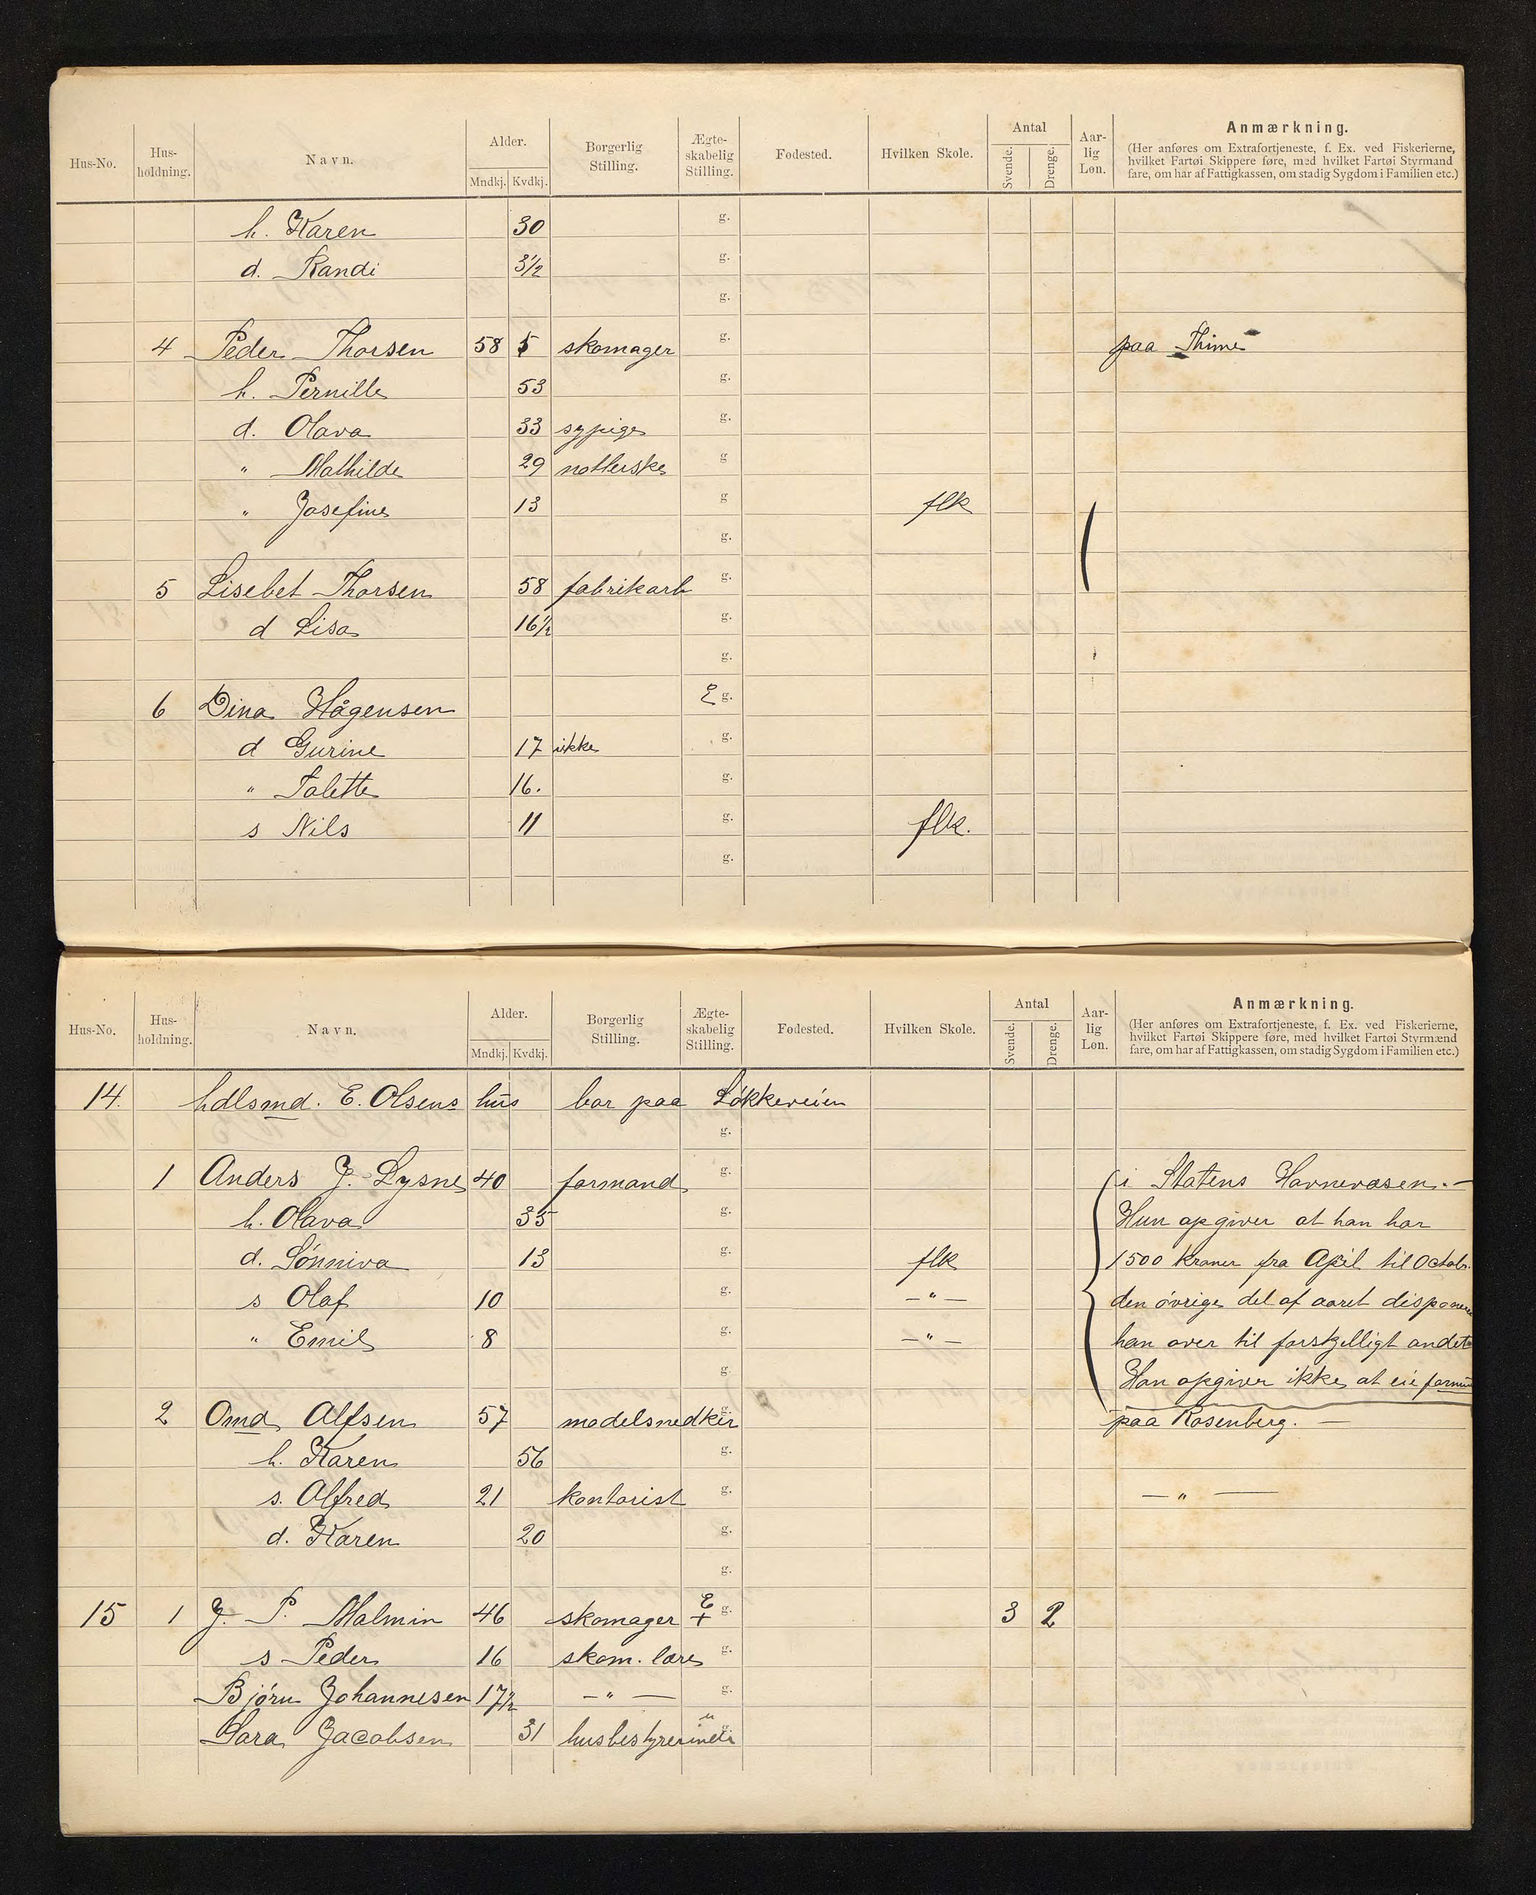 Hus-No. Hus-holdning. Navn. Alder. Mndkj. Kvdkj. Borgerlig Stilling. Ægte-skabelig Stilling. Fødested. Hvilken Skole. Antal Svende. Drenge. Aar-lig Løn. Anmærkning.
(Her anføres om Extrafortjeneste, f. Ex. ved Fiskerierne,
hvilket Fartøi Skippere føre, med hvilket Fartøi Styrmænd
fare, om har af Fattigkassen, om stadig Sygdom i Familien etc.)
h. Karen 30 g.
d. Randi 3½ g.
g.
4 Peder Thorsen 58 5 skomager g. paa Thime
h. Pernille 53 g.
d. Olava 33 sypige g.
" Mathilde 29 notterske g
" Josefine 13 g flk
g.
5 Lisebet Thorsen 58 fabrikarb g.
d Lisa 16½ g.
g.
6 Dina Hågensen E g.
d Gurine 17 ikke g.
" Talette 16. g.
s Nils 11 g. flk.
g.
Hus-No. Hus-holdning. Navn. Alder. Mndkj. Kvdkj. Borgerlig Stilling. Ægte-skabelig Stilling. Fødested. Hvilken Skole. Antal Svende. Drenge. Aar-lig Løn. Anmærkning.
(Her anføres om Extrafortjeneste, f. Ex. ved Fiskerierne,
hvilket Fartøi Skippere føre, med hvilket Fartøi Styrmænd
fare, om har af Fattigkassen, om stadig Sygdom i Familien etc.)
14. hdlsmd. E. Olsens hus bor paa Løkkeveien
g.
1 Anders J. Lysne 40 formand g. i Statens Havnevæsen. –
h. Olava 35 g. Hun opgiver at han har
d. Sønniva 13 g. flk 1500 kroner fra April til Octobr.
s Olaf 10 g. – " – den øvrige del af aaret disponerer
" Emil 8 g. – " – han over til forskjelligt andet
g. Han opgiver ikke at eie formue
2 Omd Alfsen 57 modelsnedker g. paa Rosenberg. –
h. Karen 56 g.
s. Alfred 21 kontorist g. – " –
d. Karen 20 g.
g.
15 1 J. P. Malmin 46 skomager E + g. 3 2
s Peder 16 skom. lære g.
Bjørn Johannesen 17½ – " – g.
Sara Jacobsen 31 husbestyrerinde " g.